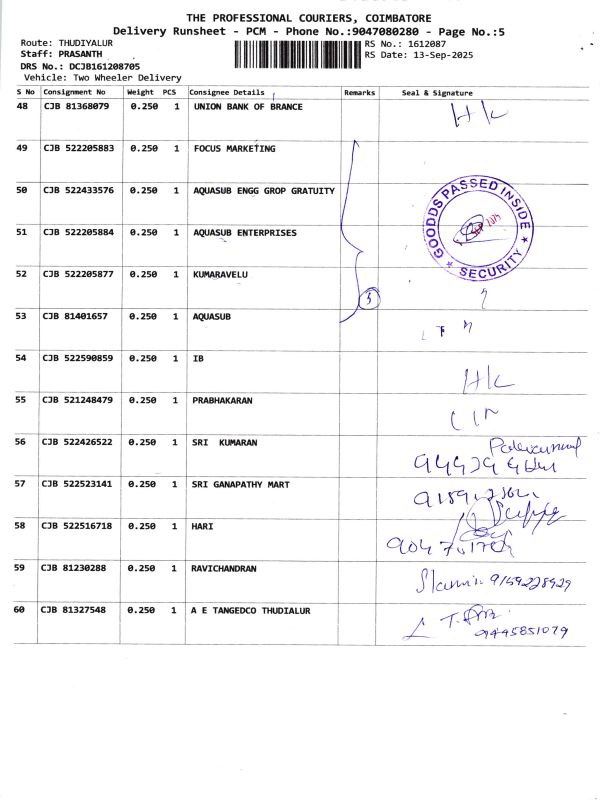 THE PROFESSIONAL COURIERS, COIMBATORE
Delivery Runsheet - PCM - Phone No.:9047080280 - Page No.:5
Route: THUDIYALUR
Staff: PRASANTH
DRS No.: DCJB161208705
Vehicle: Two Wheeler Delivery
RS No.: 1612087
RS Date: 13-Sep-2025
S No Consignment No Weight PCS Consignee Details Remarks Seal & Signature
48 CJB 81368079 0.250 1 UNION BANK OF BRANCE
49 CJB 522205883 0.250 1 FOCUS MARKETING
50 CJB 522433576 0.250 1 AQUASUB ENGG GROP GRATUITY
51 CJB 522205884 0.250 1 AQUASUB ENTERPRISES
GOODDS PASSED INSIDE
SECURITY
52 CJB 522205877 0.250 1 KUMARAVELU
5
53 CJB 81401657 0.250 1 AQUASUB
54 CJB 522590859 0.250 1 IB
55 CJB 521248479 0.250 1 PRABHAKARAN
56 CJB 522426522 0.250 1 SRI KUMARAN
57 CJB 522523141 0.250 1 SRI GANAPATHY MART
58 CJB 522516718 0.250 1 HARI
59 CJB 81230288 0.250 1 RAVICHANDRAN
9159228929
60 CJB 81327548 0.250 1 A E TANGEDCO THUDIALUR
9445851079